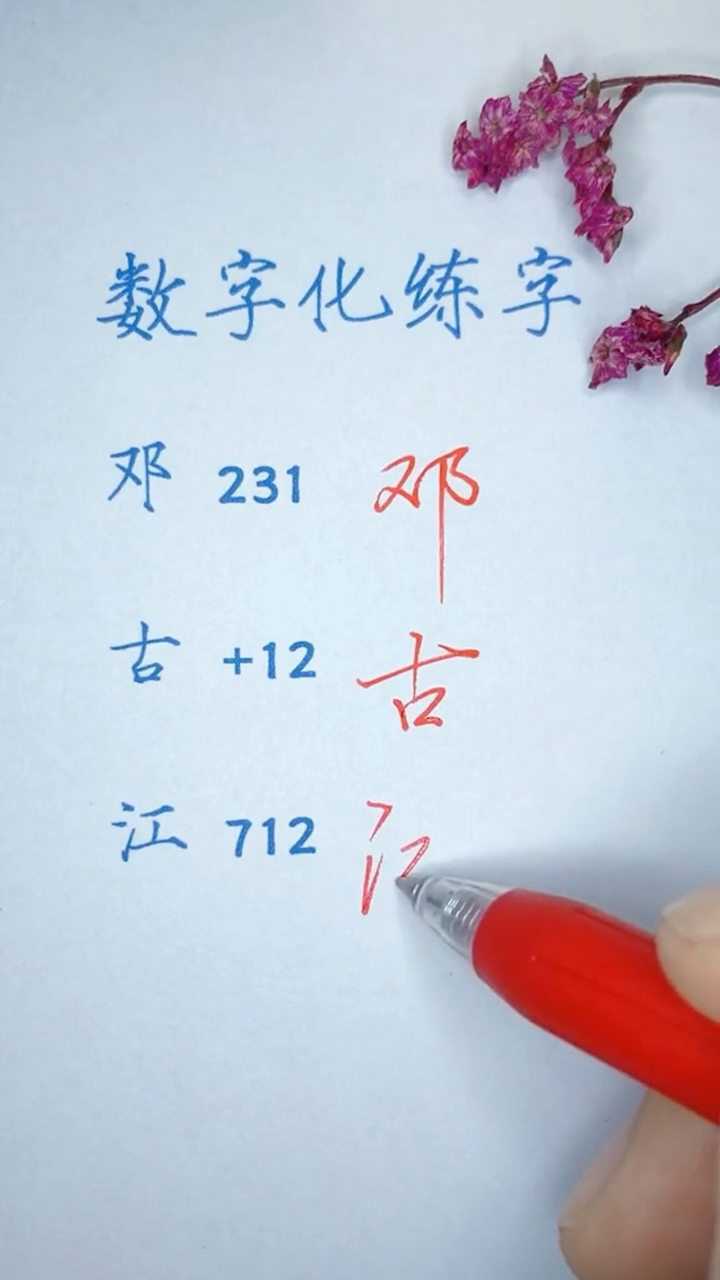 数字化练字
邓 231 邓
古 +12 古
江 712